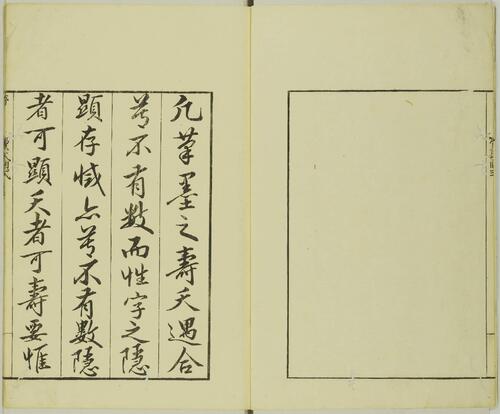 凡筆墨之壽夭遇合
莫不有數而性字之隱
顯存滅亦莫不有數隱
者可顯夭者可壽要惟